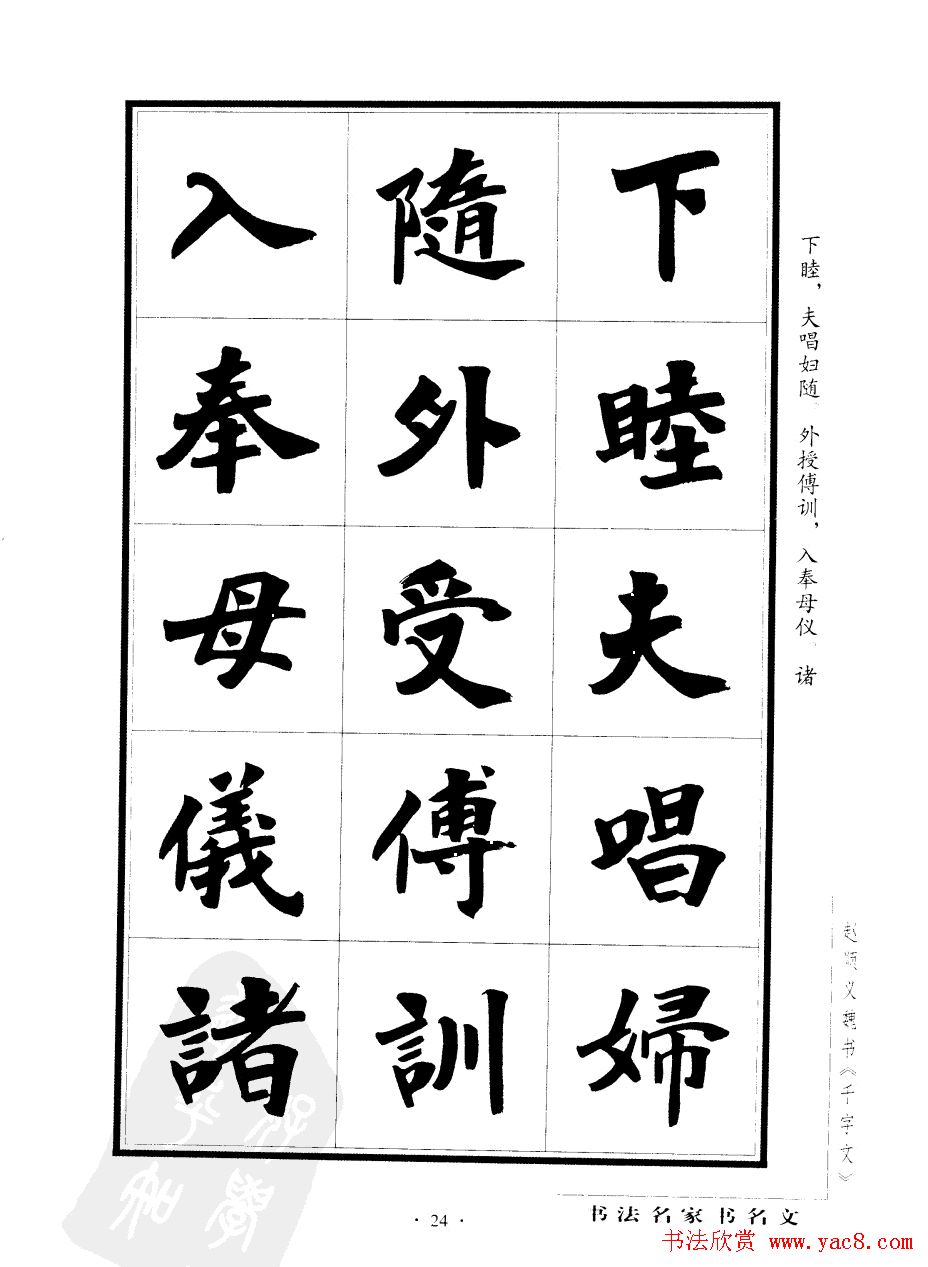 下睦夫唱婦
隨外受傅訓
入奉母儀諸
下睦，夫唱妇随 外授傅训，入奉母仪 诸
赵颂义魏书《千字文》
· 24 ·
书法名家书名文
书法欣赏 www.yac8.com